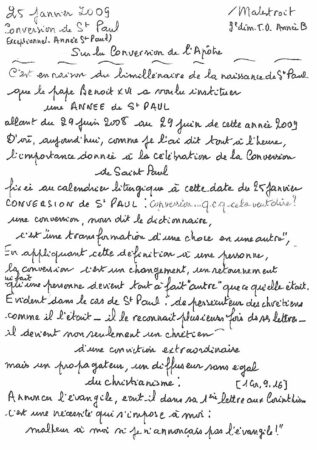 25 Janvier 2009
/Malestroit
Conversion de St Paul
3e dim. T.O. Année B
Exceptionnel. Année St Paul)
Sur la Conversion de l'Apôtre
C'est en raison du bimillénaire de la naissance de St Paul
que le pape Benoit XVI a voulu instituer
une ANNÉE de ST PAUL
allant du 29 juin 2008 au 29 juin de cette année 2009
D'où, aujourd'hui, comme je l'ai dit tout à l'heure,
l'importance donnée à la célébration de la Conversion
de Saint Paul
fixée au calendrier liturgique à cette date du 25 janvier
CONVERSION de ST PAUL : Conversion... q.c.q. cela veut dire ?
une conversion, nous dit le dictionnaire,
c'est "une transformation d'une chose en une autre",
En appliquant cette définition à une personne,
la conversion c'est un changement, un retournement
qui fait
qu'une personne devient tout à fait "autre" que ce qu'elle était.
Évident dans le cas de St Paul : de persécuteur des chrétiens
comme il l'était — il le reconnait plusieurs fois ds ses lettres —
il devient non seulement un chrétien
d'une conviction extraordinaire
mais un propagateur, un diffuseur sans égal
du christianisme : [1 Co, 9. 16]
Annoncer l'évangile, écrit-il dans sa 1re lettre aux Corinthiens
c'est une nécessité qui s'impose à moi :
malheur à moi si je n'annonçais pas l'évangile !"